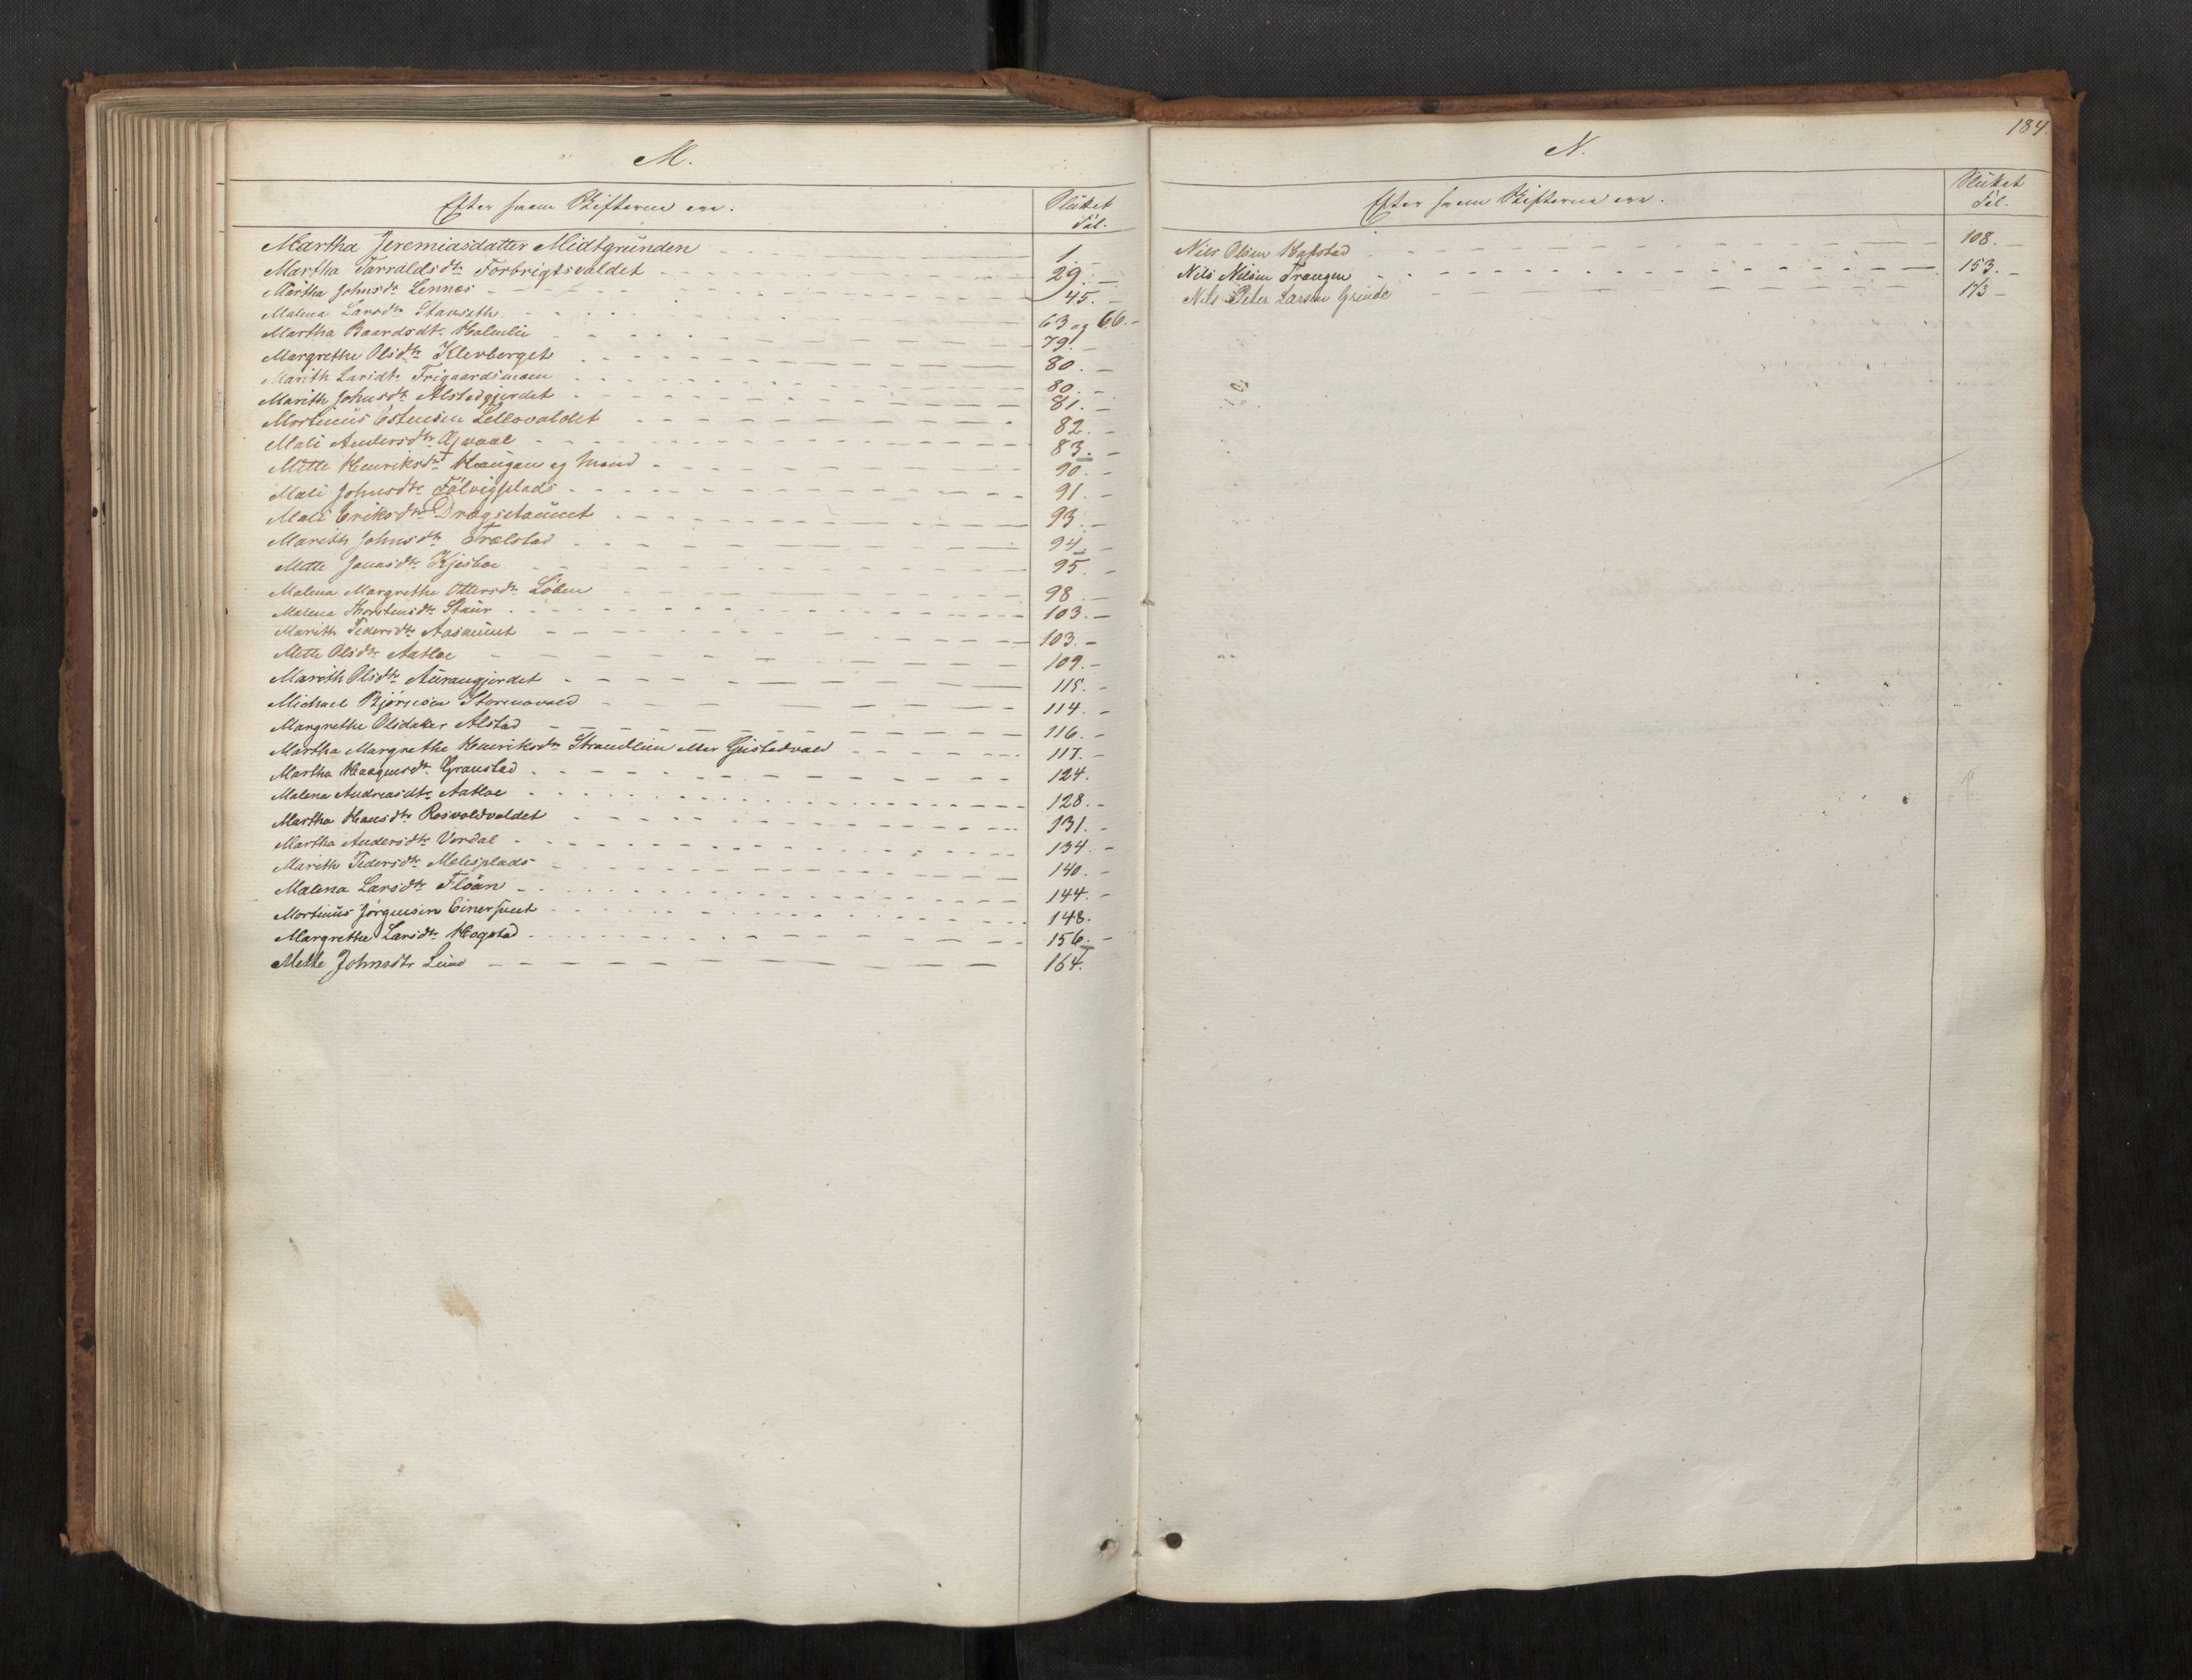 M.
Efter hvem Skifterne ere.
Blåket
Tål.
Martha Jeremiasdatter Midtgrunden 1.
Martha Tarraldsdtr Forbrigtsvaldet 29.
Martha Johnsdtr Lennes 45.
Malena Larsdtr Stamseth 63 og 66.
Martha Baardsdtr Halmlie 79.
Margrethe Olsdtr Klevberget 80.
Marith Larsdtr Frigaardsmoen 80.
Marith Johnsdtr Alstadgjerdet 81.
Mortinus Estensen Lellovaldet 82.
Mali Andersdtr 83.
Mette Henriksdtr Haugan og Mand 90.
Mali Johnsdtr Fålvigplads 91.
Mali Eriksdtr Dragsetaunet 93.
Marith Johnsdtr Trælstad 94.
Mette Jonasdtr 95.
Malena Margrethe Ottersdtr Løben 98.
Malena Thorstensdtr Staur 103.
Marith Pedersdtr Aasaunet 103.
Mette Olsdtr Aatloe 109.
Marith Olsdtr Auranggjerdet 115.
Michael Bjørnsen 114.
Margrethe Olsdatter Alstad 116.
Martha Margrethe Henriksdtr Strandlien eller Gjistadvald 117.
Martha Haagensdtr Granstad 124.
Malena Andreasdtr Aatloe 128.
Martha Hansdtr Rosvoldvaldet 131.
Martha Andersdtr Vordal 134.
Marith Pedersdtr Melesplads 140.
Malena Larsdtr Floan 144.
Mortinus Jørgensen 148.
Margrethe Larsdtr Hogstad 156.
Mette Johnsdtr Lund 164.
184.
N.
Efter hvem Skifterne ere.
Blåket
Tål.
Nils Olsen Hafstad 108.
Nils Nilsen Trangen 153.
Nils Peter Larsen Grinde 173